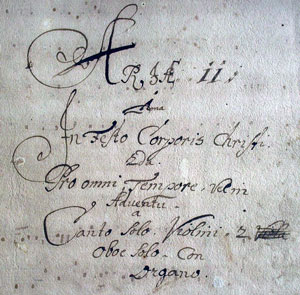 ARIÆ II
In Festo Corporis Christi
2da
Pro omni Tempore
Adventu
a
Canto Solo. Violini. 2.
Oboe Solo. Con
Organo.